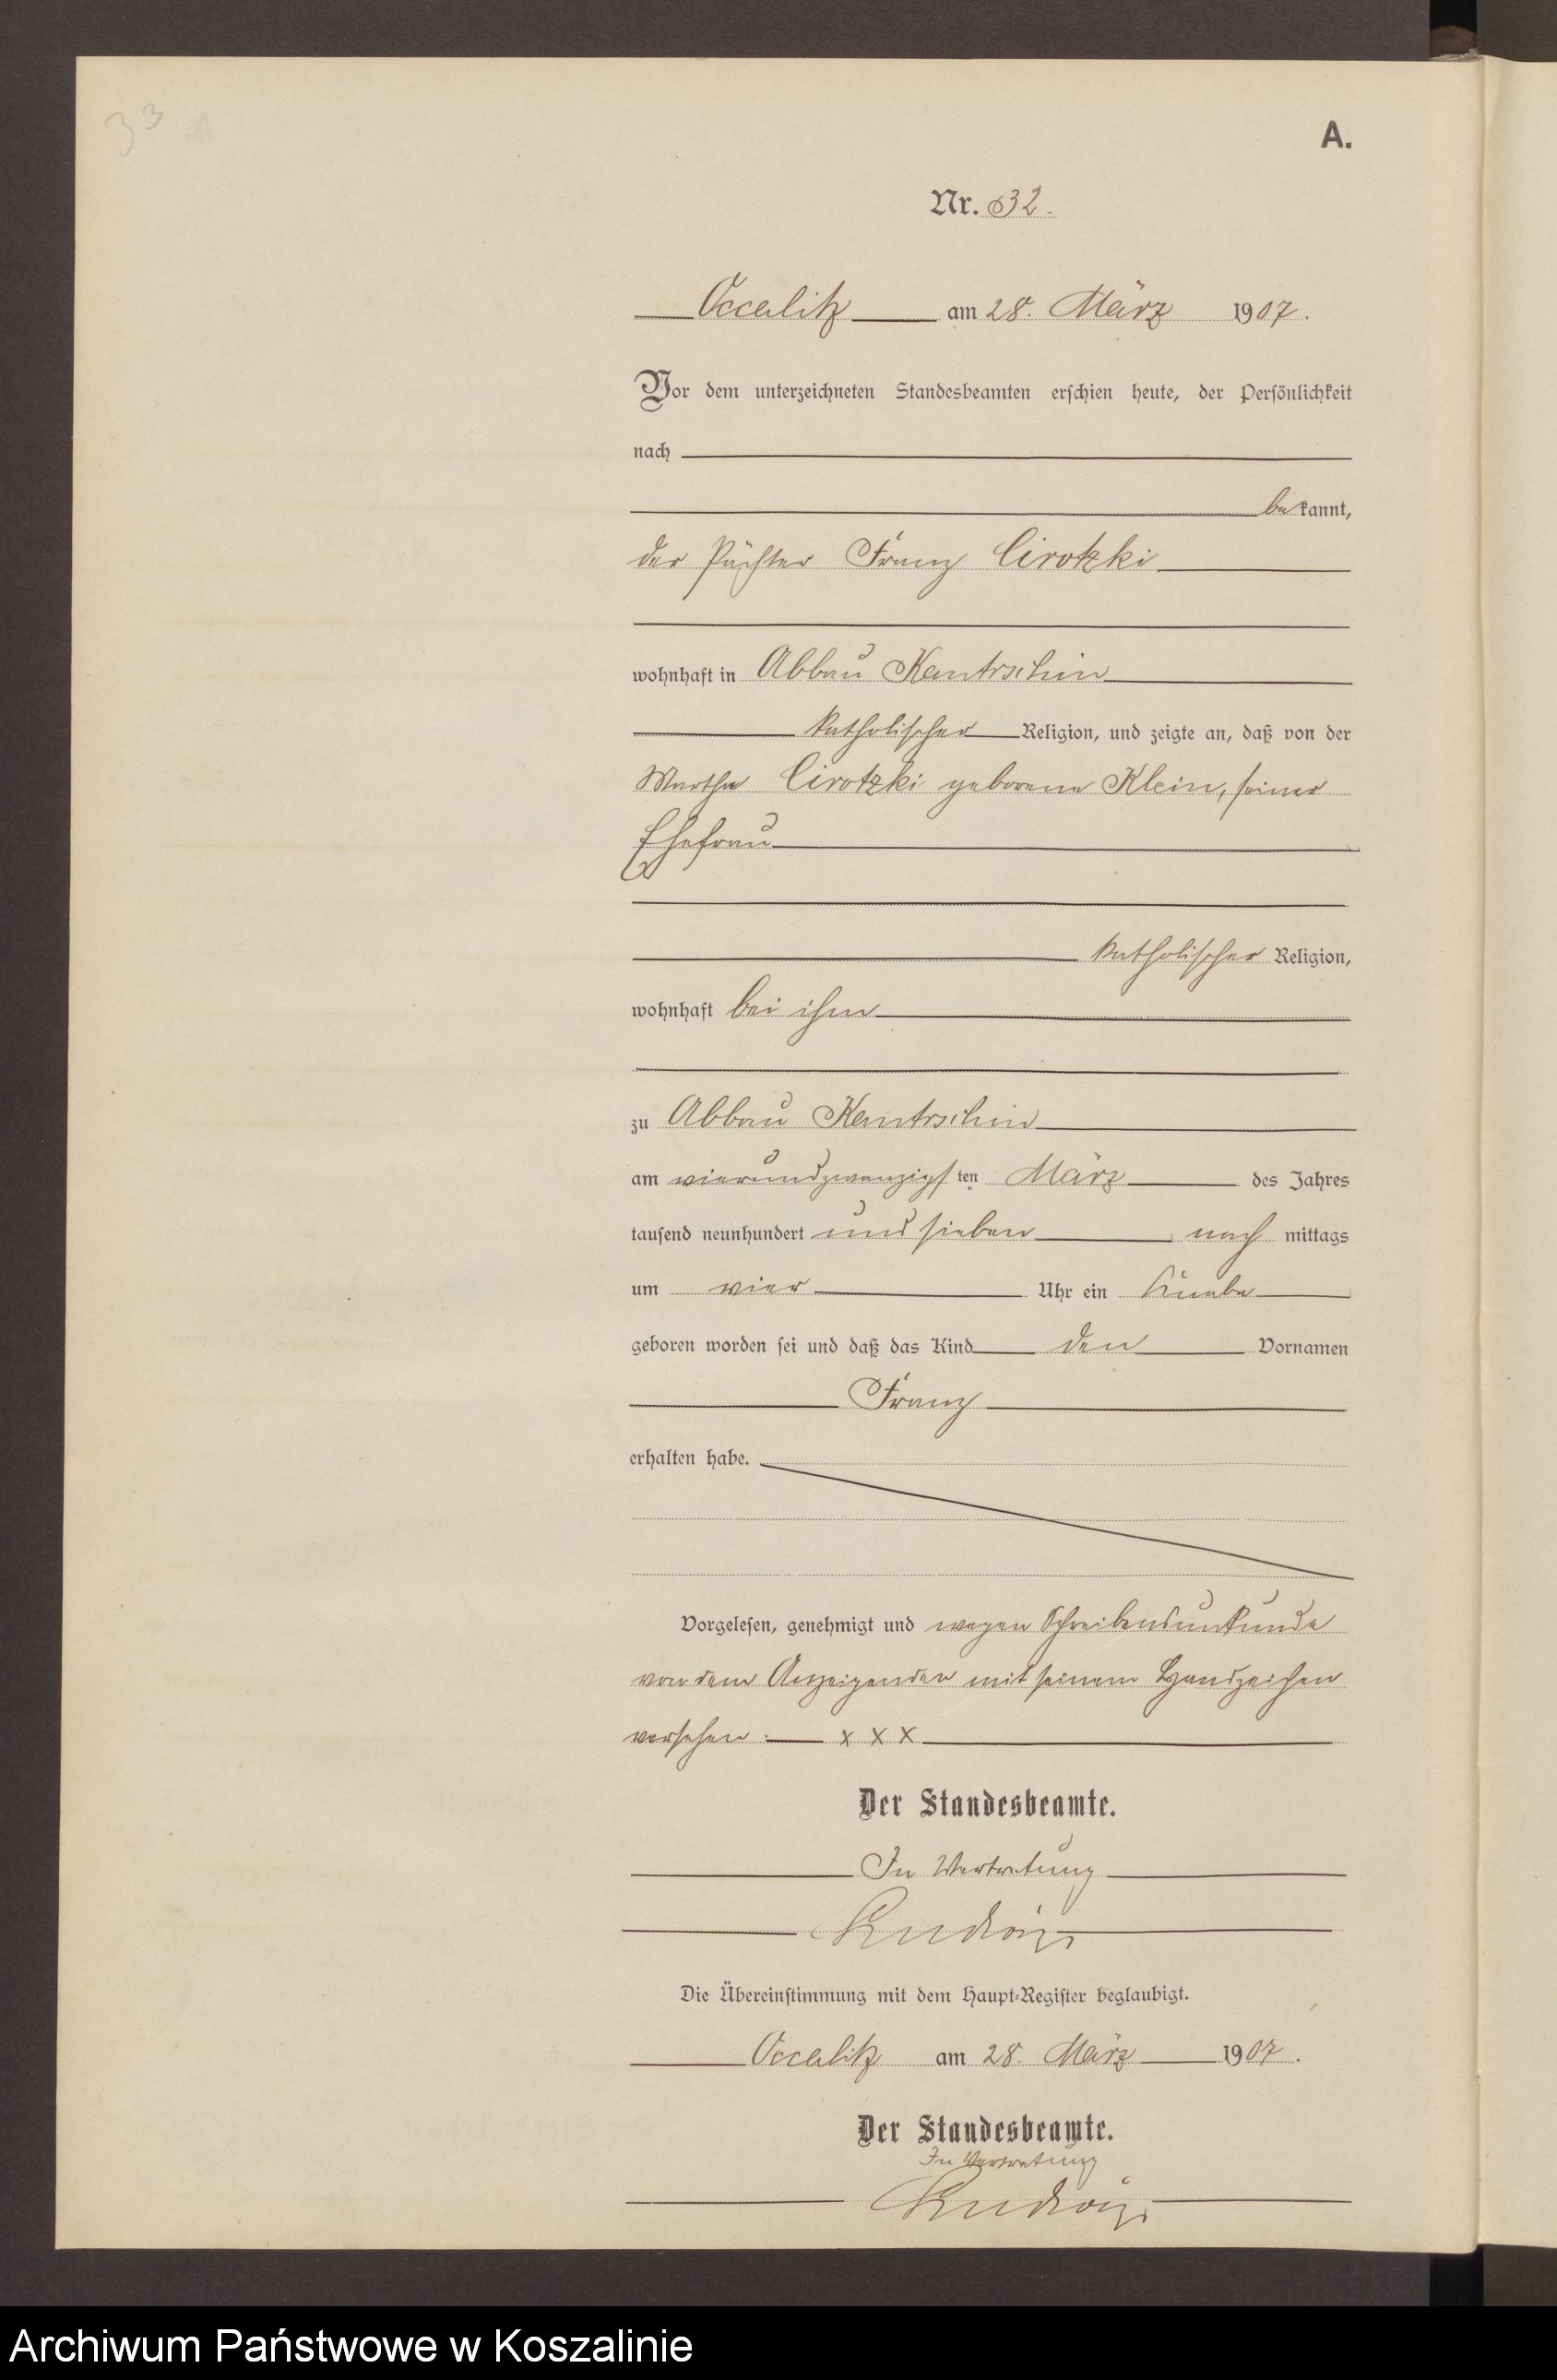 33
A.
Nr. 32.
Occalitz am 28. März 1907.
Vor dem unterzeichneten Standesbeamten erschien heute, der Persönlichkeit
nach
bekannt,
der Pächter Franz Cirotzki
wohnhaft in Abbau Kantrschin
katholischer Religion, und zeigte an, daß von der
Martha Cirotzki geborene Klein, seiner
Ehefrau
katholischer Religion,
wohnhaft bei ihm
zu Abbau Kantrschin
am vierundzwanzigsten März des Jahres
tausend neunhundert und sieben nachmittags
um vier Uhr ein Knabe
geboren worden sei und daß das Kind den Vornamen
Franz
erhalten habe.
Vorgelesen, genehmigt und wegen Schreibensunkunde
von dem Anzeigenden mit seinem Handzeichen
versehen. x x x
Der Standesbeamte.
In Vertretung
Die Übereinstimmung mit dem Haupt-Register beglaubigt.
Occalitz am 28. März 1907.
Der Standesbeamte.
In Vertretung
Archiwum Państwowe w Koszalinie